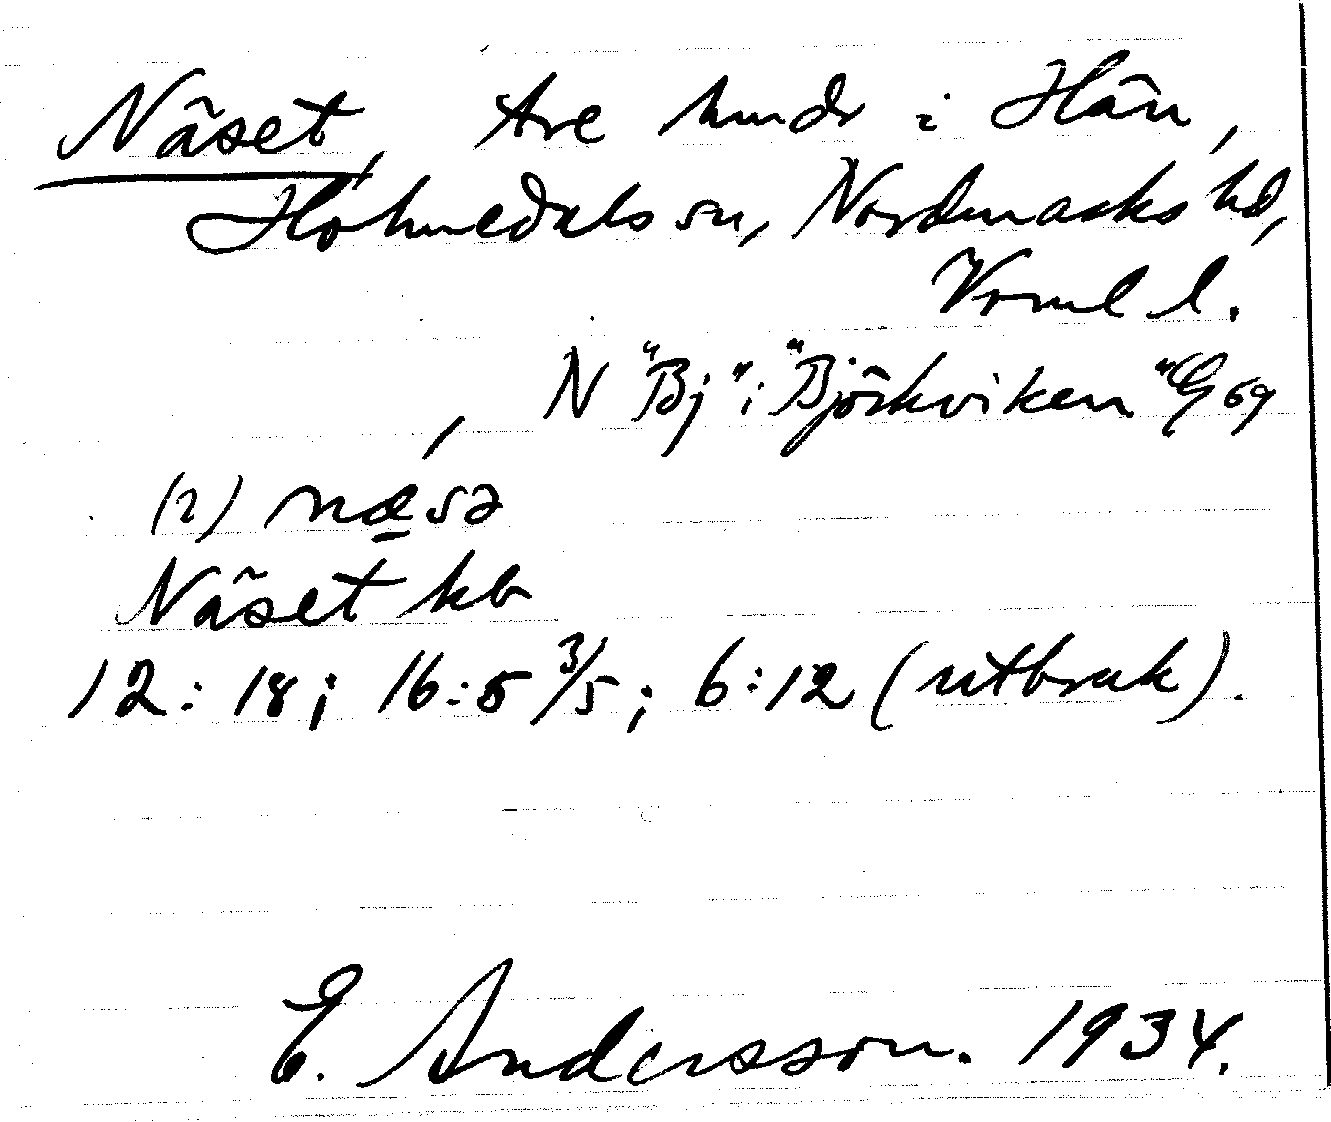 Näset, tre hmdr i Hån,
Holmedals sn, Nordmarks hd,
Vrml l.
, N "Bj" i "Björkviken" G 69
(2) næsə
Näset kb
12:18; 16:5 3/5; 6:12 (utbruk).
E. Andersson. 1934.